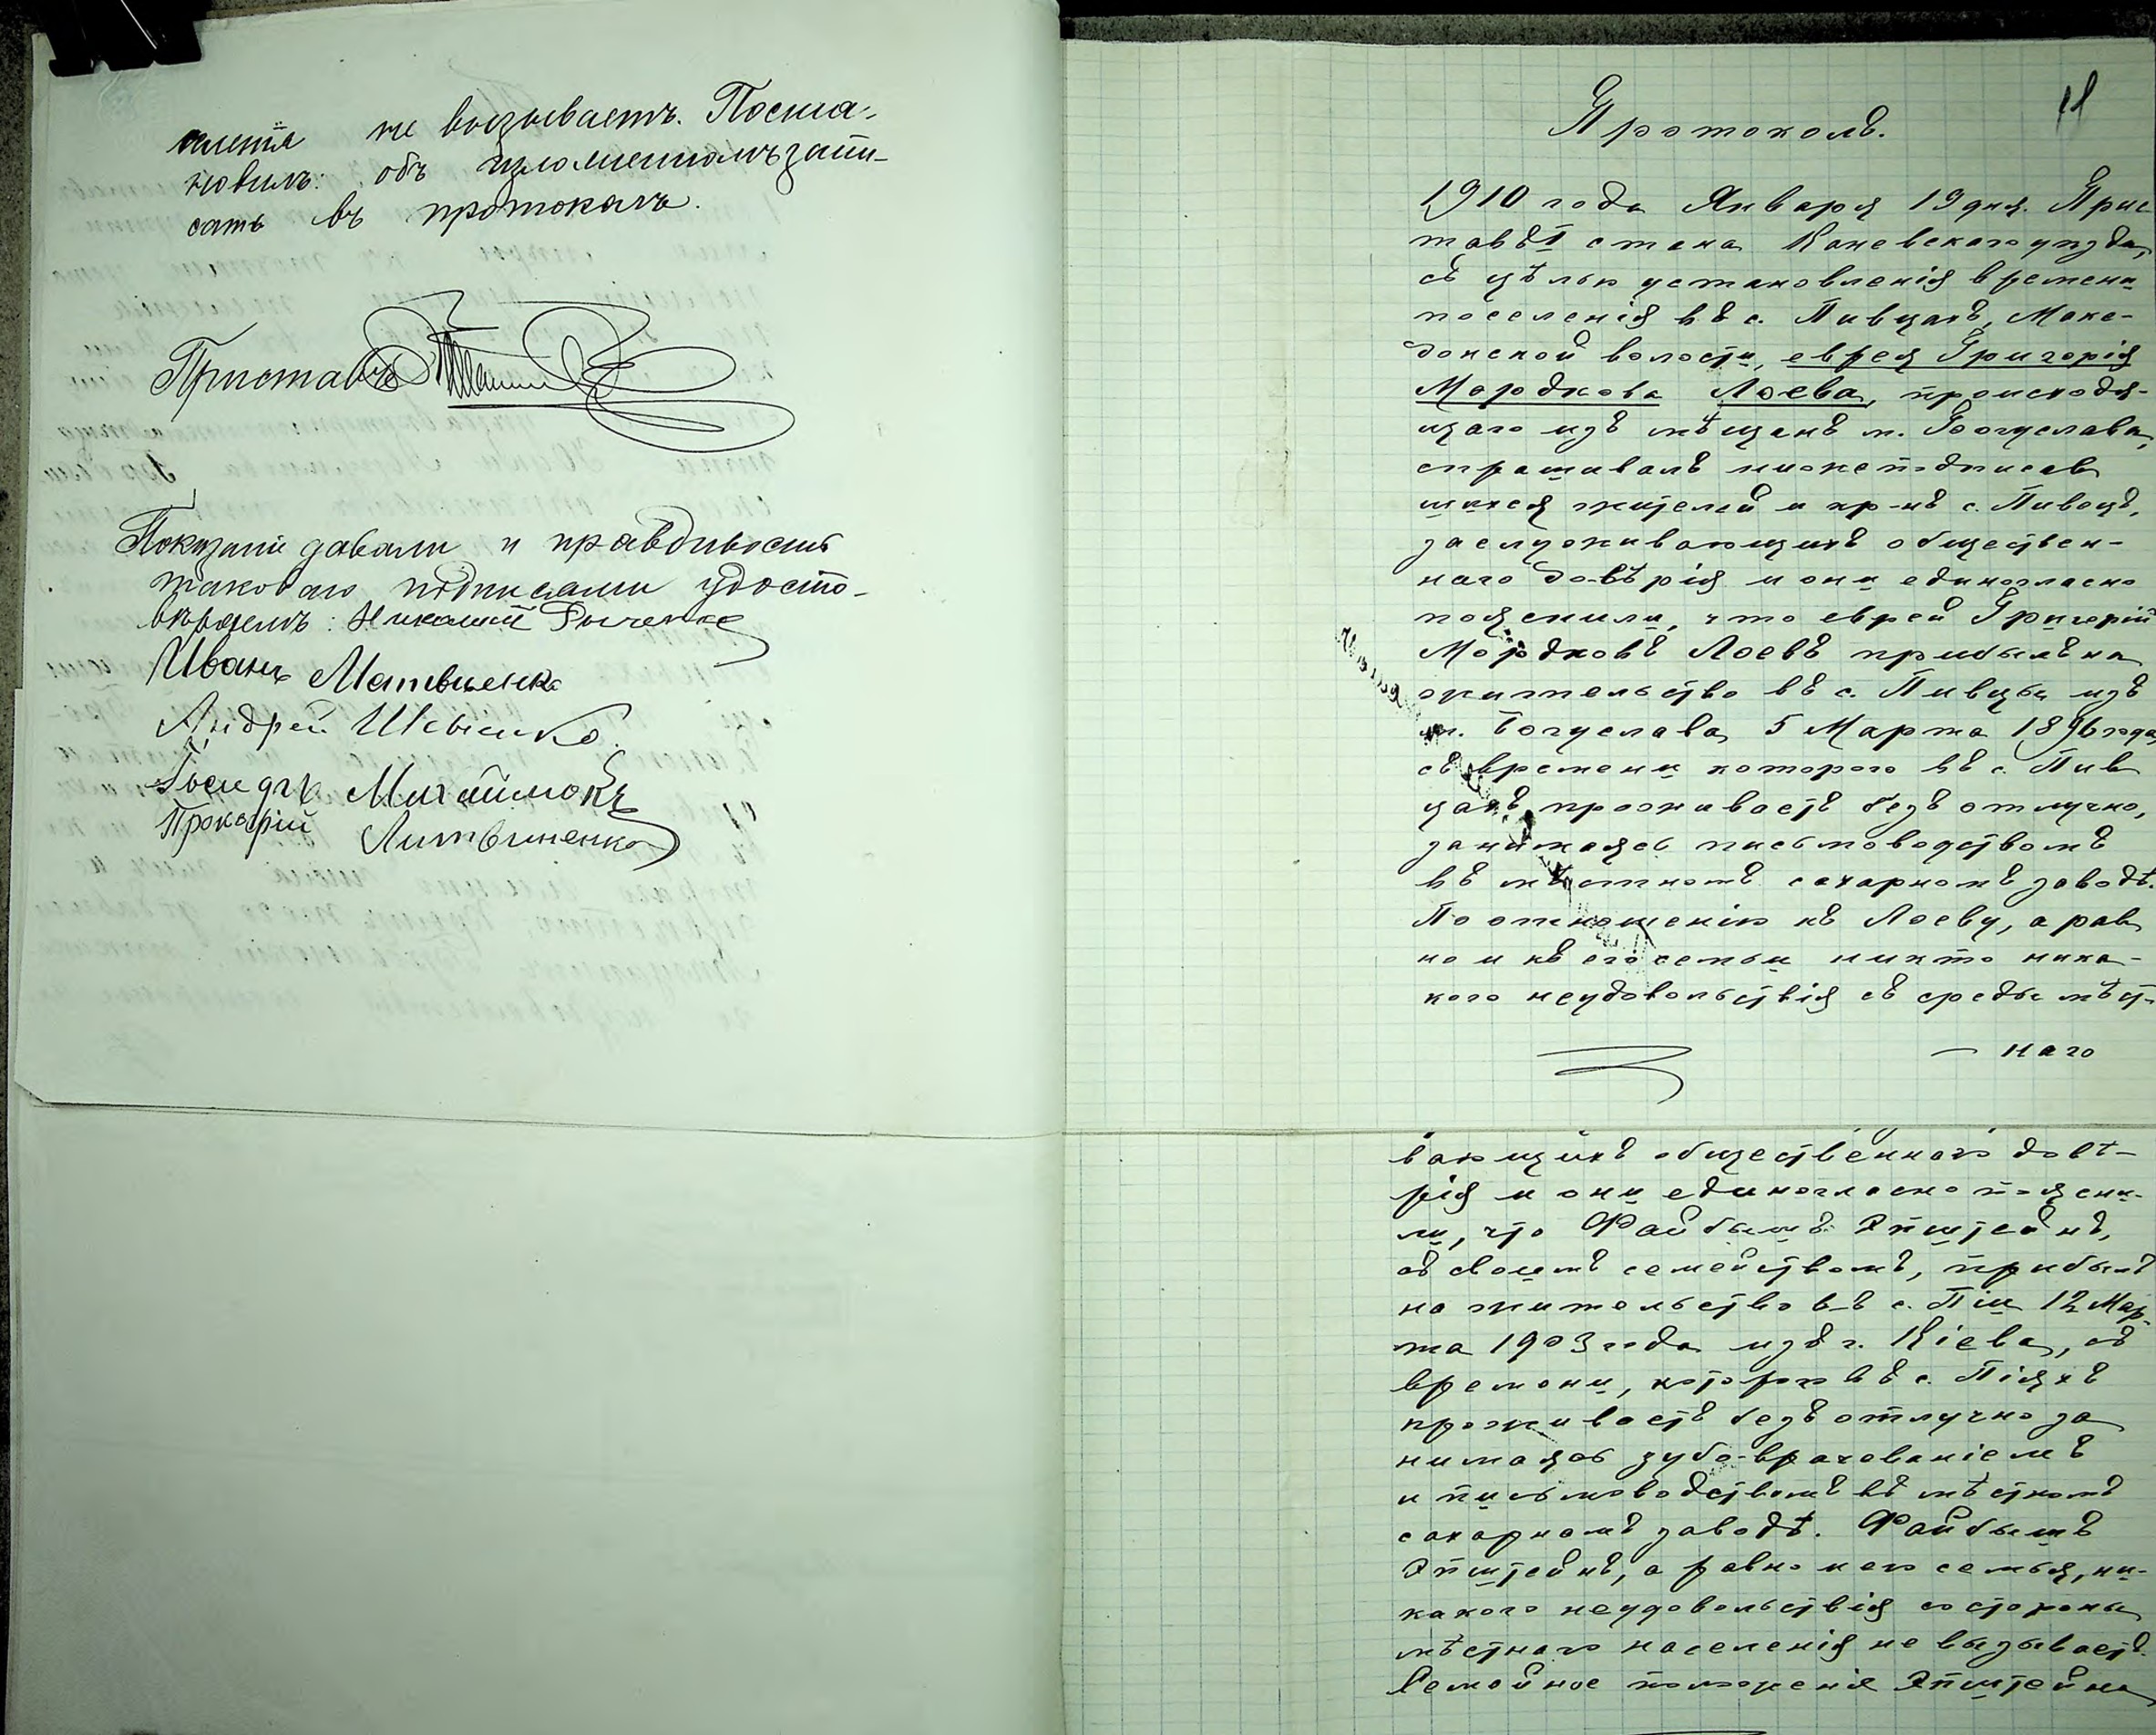 не вызываетъ. Поста-
новилъ: объ изложенномъ запи-
сать въ протоколъ.
Приставъ
Показаніе давали и правдивость
таковаго подписами удосто-
вѣряемъ: Николай
Иванъ Матвіенко
Андрей
Іосифъ Михайлюкъ
Прокофій Литвиненко
Протоколъ.
1910 года Января 19 дня. Прис
тавъ I стана Каневскаго уѣзда,
съ цѣлью установленія времени
поселенія въ с. Пивцахъ, Маке-
донской волости, еврея Григорія
Мордкова Лоева, происходя-
щаго изъ мѣщанъ м. Богуслава,
спрашивалъ нижеподписав
шихся жителей и кр-нъ с. Пивецъ,
заслуживающихъ обществен-
наго довѣрія и они единогласно
пояснили, что еврей Григорій
Мордковъ Лоевъ прибылъ на
жительство въ с. Пивцы изъ
м. Богуслава 5 Марта 1896 года
съ времени котораго въ с. Пив
цахъ проживаетъ безъ отлучно,
занимаясь письмоводствомъ
въ мѣстномъ сахарномъ заводѣ.
По отношенію къ Лоеву, а рав
но и къ его семьи никто ника-
кого неудовольствія съ среды мѣст-
— наго
вающихъ общественнаго довѣ-
рія и они единогласно поясни-
ли, что Файбышъ Эпштейнъ,
съ своимъ семействомъ, прибылъ
на жительство въ с. Піи 12 Мар-
та 1903 года изъ г. Кіева, съ
времени, котораго въ с. Піяхъ
проживаетъ безъ отлучно за
нимаясь зубо-врачеваніемъ
и письмоводствомъ въ мѣстномъ
сахарномъ заводѣ. Файбышъ
Эпштейнъ, а равно и его семья, ни-
какого неудовольствія со стороны
мѣстнаго населенія не вызываетъ.
Семейное положенія Эпштейна